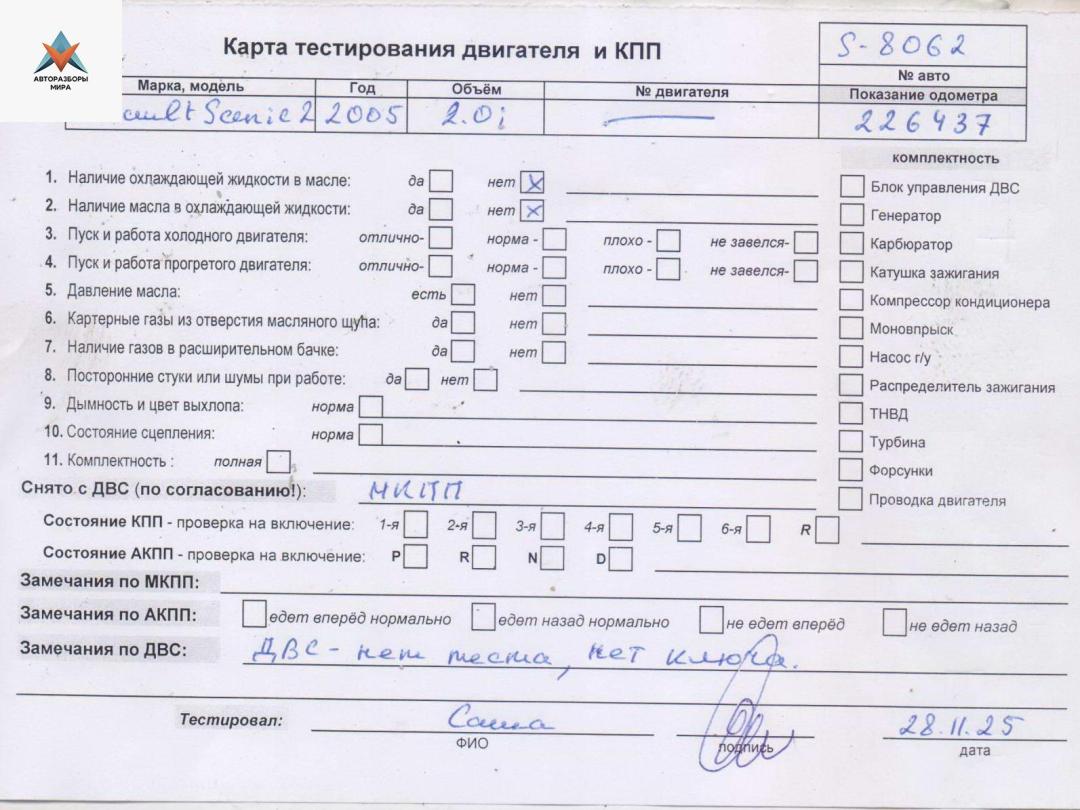 АВТОРАЗБОРЫ
МИРА
Карта тестирования двигателя и КПП
S-8062
№ авто
Марка, модель Год Объём № двигателя Показание одометра
ault Scenic 2 2005 2.0i — 226437
комплектность
1. Наличие охлаждающей жидкости в масле: да нет X
Блок управления ДВС
2. Наличие масла в охлаждающей жидкости: да нет X
Генератор
3. Пуск и работа холодного двигателя: отлично- норма - плохо - не завелся-
Карбюратор
4. Пуск и работа прогретого двигателя: отлично- норма - плохо - не завелся-
Катушка зажигания
5. Давление масла: есть нет
Компрессор кондиционера
6. Картерные газы из отверстия масляного щупа: да нет
Моновпрыск
7. Наличие газов в расширительном бачке: да нет
Насос г/у
8. Посторонние стуки или шумы при работе: да нет
Распределитель зажигания
9. Дымность и цвет выхлопа: норма
ТНВД
10. Состояние сцепления: норма
Турбина
11. Комплектность : полная
Форсунки
Снято с ДВС (по согласованию!): МКПП
Проводка двигателя
Состояние КПП - проверка на включение: 1-я 2-я 3-я 4-я 5-я 6-я R
Состояние АКПП - проверка на включение: P R N D
Замечания по МКПП:
Замечания по АКПП: едет вперёд нормально едет назад нормально не едет вперёд не едет назад
Замечания по ДВС: ДВС - нет теста, нет ключа.
Тестировал: Саша 28.11.25
ФИО подпись дата